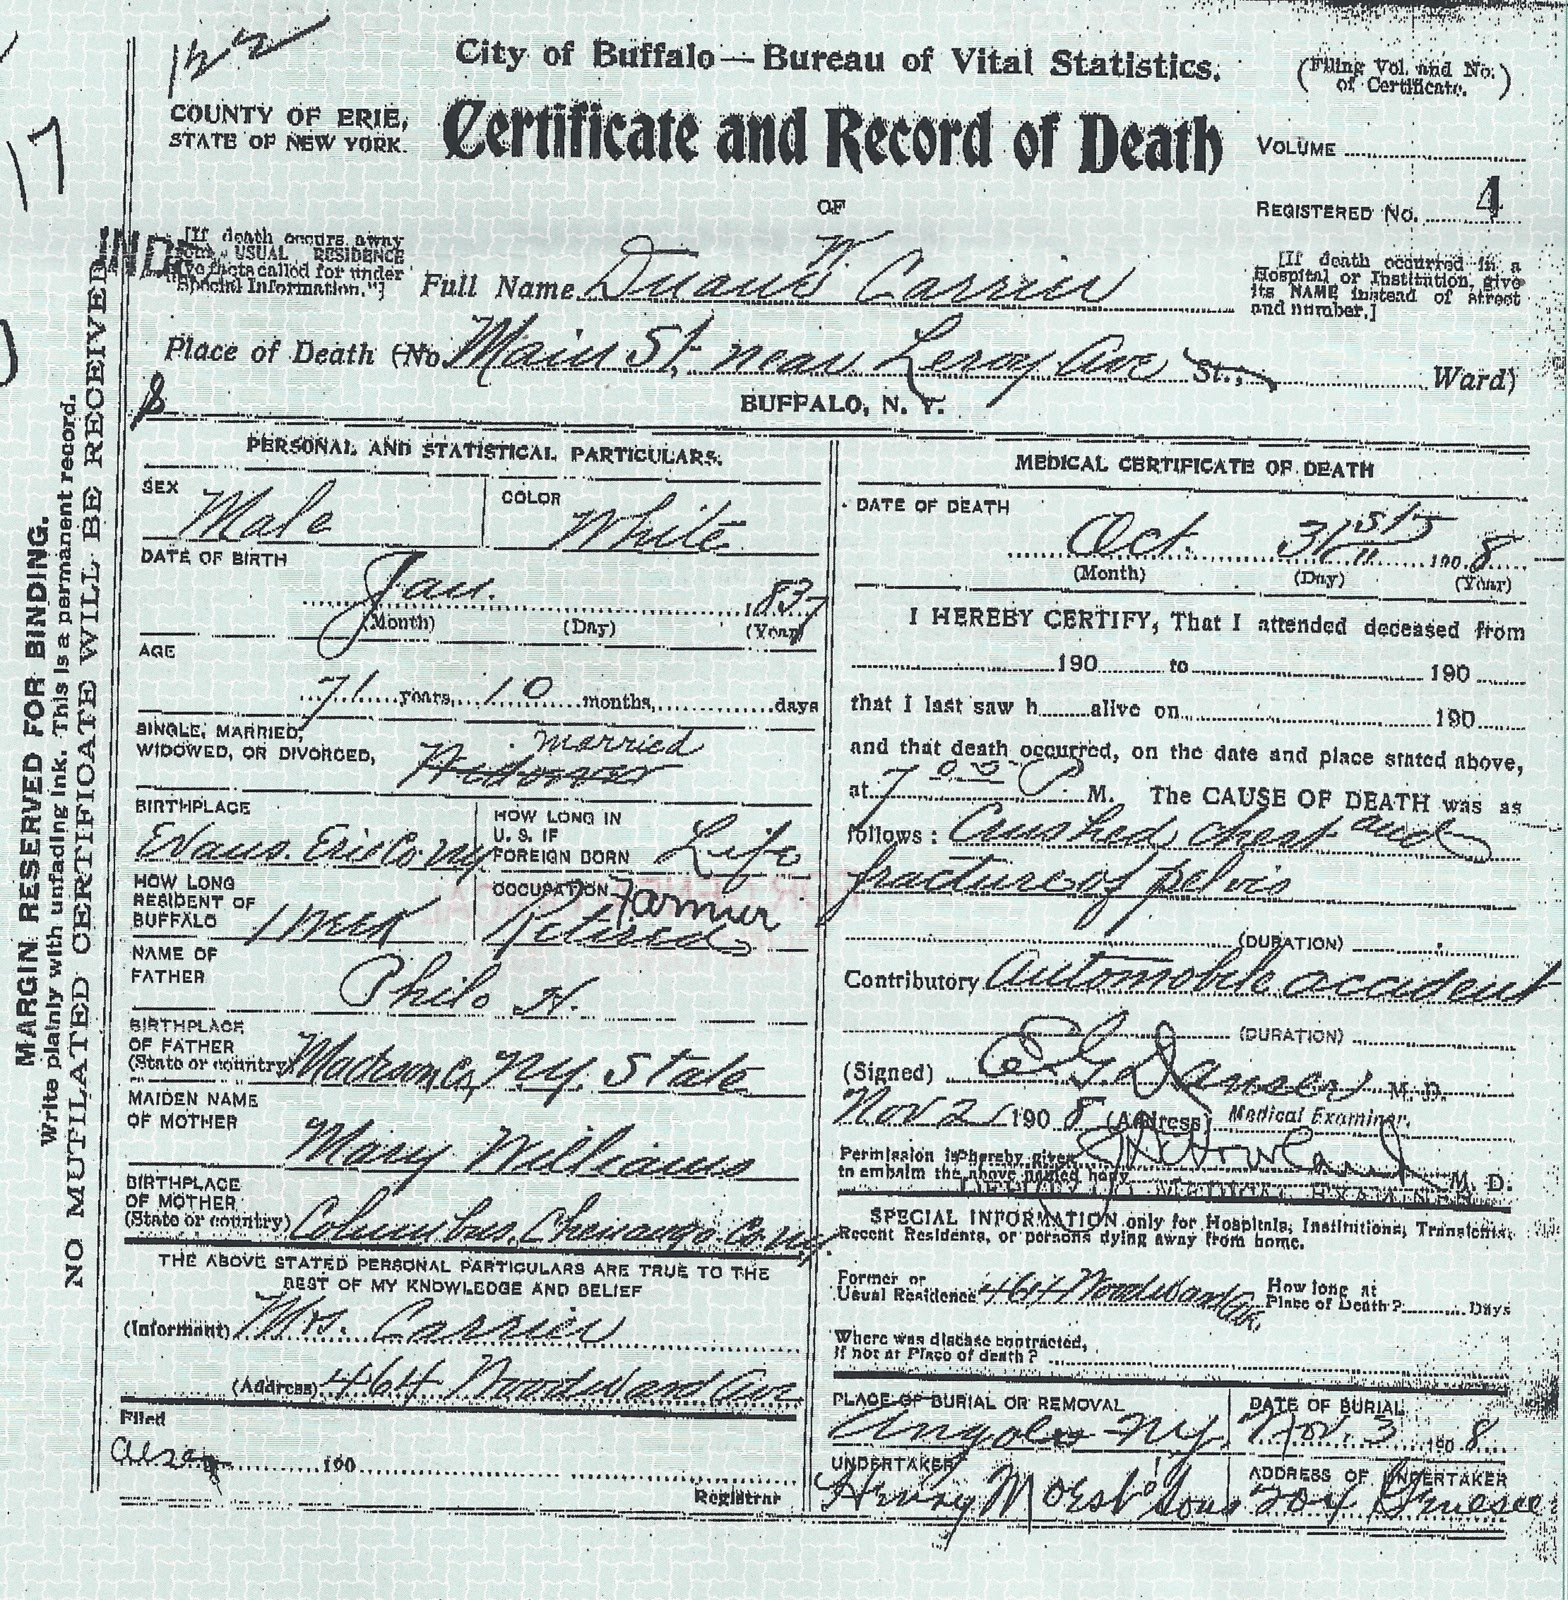 122
City of Buffalo — Bureau of Vital Statistics.
(Filing Vol. and No. of Certificate.)
COUNTY OF ERIE,
STATE OF NEW YORK.
Certificate and Record of Death
VOLUME
REGISTERED No. 4
17
OF
[If death occurs away
USUAL RESIDENCE
facts called for under
"Special Information."]
Full Name Duane W. Carrier
[If death occurred in a
Hospital or Institution, give
its NAME instead of street
and number.]
Place of Death (No. Main St. near Leroy Ave St., Ward)
BUFFALO, N. Y.
MARGIN RESERVED FOR BINDING.
Write plainly with unfading ink. This is a permanent record.
NO MUTILATED CERTIFICATE WILL BE RECEIVED
PERSONAL AND STATISTICAL PARTICULARS.
SEX Male
COLOR White
DATE OF BIRTH
Jan. 1837
(Month) (Day) (Year)
AGE
71 years, 10 months, days
SINGLE, MARRIED,
WIDOWED, OR DIVORCED,
married
Widower
BIRTHPLACE
Evans. Erie Co. NY
HOW LONG IN
U. S. IF
FOREIGN BORN Life
HOW LONG
RESIDENT OF
BUFFALO 1 week
OCCUPATION Farmer
Retired
NAME OF
FATHER Philo H.
BIRTHPLACE
OF FATHER
(State or country) Madison Co, NY. State
MAIDEN NAME
OF MOTHER
Mary Williams
BIRTHPLACE
OF MOTHER
(State or country) Columbus, Chenango Co. NY.
THE ABOVE STATED PERSONAL PARTICULARS ARE TRUE TO THE
BEST OF MY KNOWLEDGE AND BELIEF
(Informant) Mrs. Carrier
(Address) 464 Woodward Ave
Filed
190
Registrar
MEDICAL CERTIFICATE OF DEATH
DATE OF DEATH
Oct. 31st 1908
(Month) (Day) (Year)
I HEREBY CERTIFY, That I attended deceased from
190 to 190
that I last saw h alive on 190
and that death occurred, on the date and place stated above,
at 7 00 P. M. The CAUSE OF DEATH was as
follows: Crushed chest and
fracture of pelvis
(DURATION)
Contributory Automobile accident
(DURATION)
(Signed) E. G. Danser M. D.
Nov 2 1908 (Address) Medical Examiner.
Permission is hereby given
to embalm the above named body
Howland M. D.
MEDICAL EXAMINER
SPECIAL INFORMATION only for Hospitals, Institutions, Transients,
Recent Residents, or persons dying away from home.
Former or
Usual Residence 464 Woodward Ave.
How long at
Place of Death? Days
Where was disease contracted,
if not at Place of death?
PLACE OF BURIAL OR REMOVAL
Angola NY.
DATE OF BURIAL
Nov. 3 1908
UNDERTAKER
Henry Moest's Sons
ADDRESS OF UNDERTAKER
204 Genesee